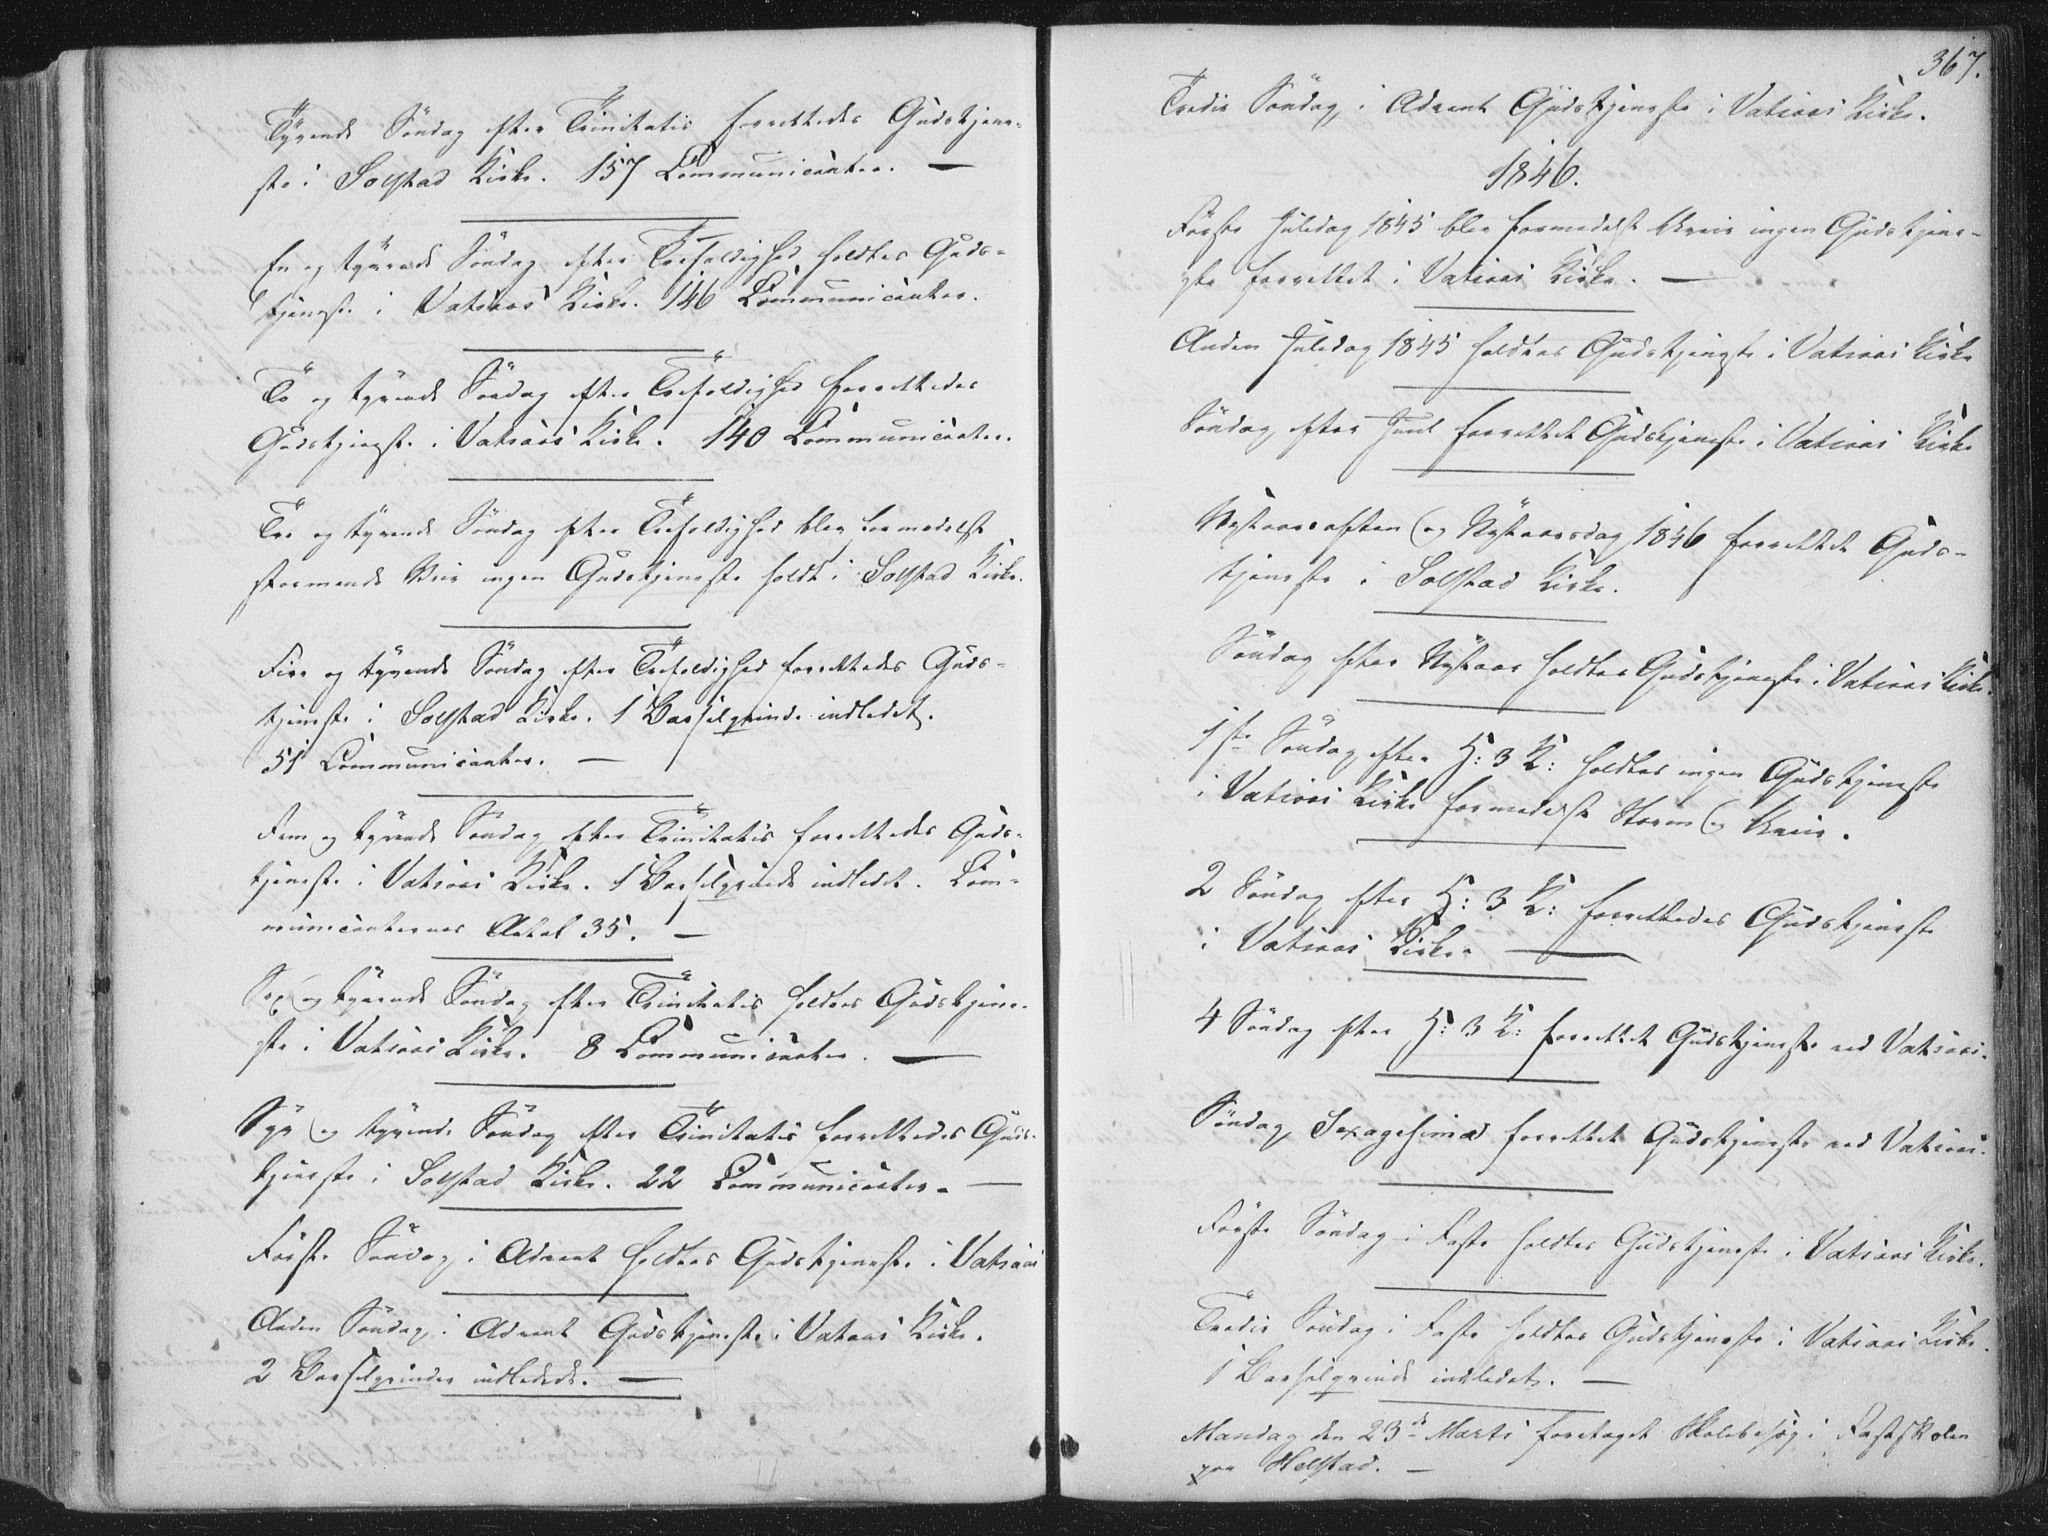 Tyvende Söndag efter Trinitatis forrettedes Gudstjene-
ste i Solstad Kirke. 157 Communicanter. —
En og tyvende Söndag efter Trefoldighed holdtes Guds-
tjeneste i Vatsaas Kirke. 146 Communicanter.
To og tyvende Söndag efter Trefoldighed forrettedes
Gudstjeneste i Vatsaas Kirke. 140 Communicanter.
Tre og tyvende Söndag efter Trefoldighed blev formedelst
stormende Veir ingen Gudstjeneste holdt i Solstad Kirke.
Fire og tyvende Söndag efter Trefoldighed forrettedes Guds-
tjeneste i Solstad Kirke. 1 Barselqvinde indledet.
51 Communicanter. —
Fem og tyvende Söndag efter Trinitatis forrettedes Guds-
tjeneste i Vatsaas Kirke. 1 Barselqvinde indledet. Com-
municanternes Antal 35. —
Sex og tyvende Söndag efter Trinitatis holdtes Gudstjene-
ste i Vatsaas Kirke. 8 Communicanter. —
Syv og tyvende Söndag efter Trinitatis forrettedes Guds-
tjeneste i Solstad Kirke. 22 Communicanter. —
Förste Söndag i Advent holdtes Gudstjeneste i Vatsaas
Anden Söndag i Advent Gudstjeneste i Vatsaas Kirke.
2 Barselqvinder indledede. —
367.
Tredie Söndag i Advent Gudstjeneste i Vatsaas Kirke.
1846.
Förste Juledag 1845 blev formedelst Uveir ingen Gudstjene-
ste forrettet i Vatsaas Kirke. —
Anden Juledag 1845 holdtes Gudstjeneste i Vatsaas Kirke
Söndag efter Juul forrettet Gudstjeneste i Vatsaas Kirke
Nytaarsaften og Nytaarsdag 1846 forrettet Guds-
tjeneste i Solstad Kirke.
Söndag efter Nytaar holdtes Gudstjeneste i Vatsaas Kirke.
1ste Söndag efter H: 3 K: holdtes ingen Gudstjeneste
i Vatsaas Kirke formedelst Storm og Uveir.
2 Söndag efter H: 3 K: forrettedes Gudstjeneste
i Vatsaas Kirke. —
4 Söndag efter H: 3 K: forrettet Gudstjeneste ved Vatsaas.
Söndag Sexagesima forrettet Gudstjeneste ved Vatsaas.
Förste Söndag i Faste holdtes Gudstjeneste i Vatsaas Kirke.
Tredie Söndag i Faste holdtes Gudstjeneste i Vatsaas Kirke.
1 Barselqvinde indledet. —
Mandag den 23de Marts foretaget Skolebesög i Fastskolen
paa Helstad. —